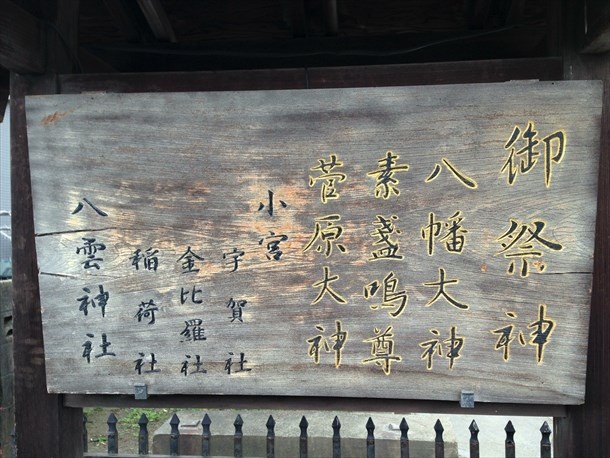 御祭神
八幡大神
素盞鳴尊
菅原大神
小宮
宇賀社
金比羅社
稲荷社
八雲神社